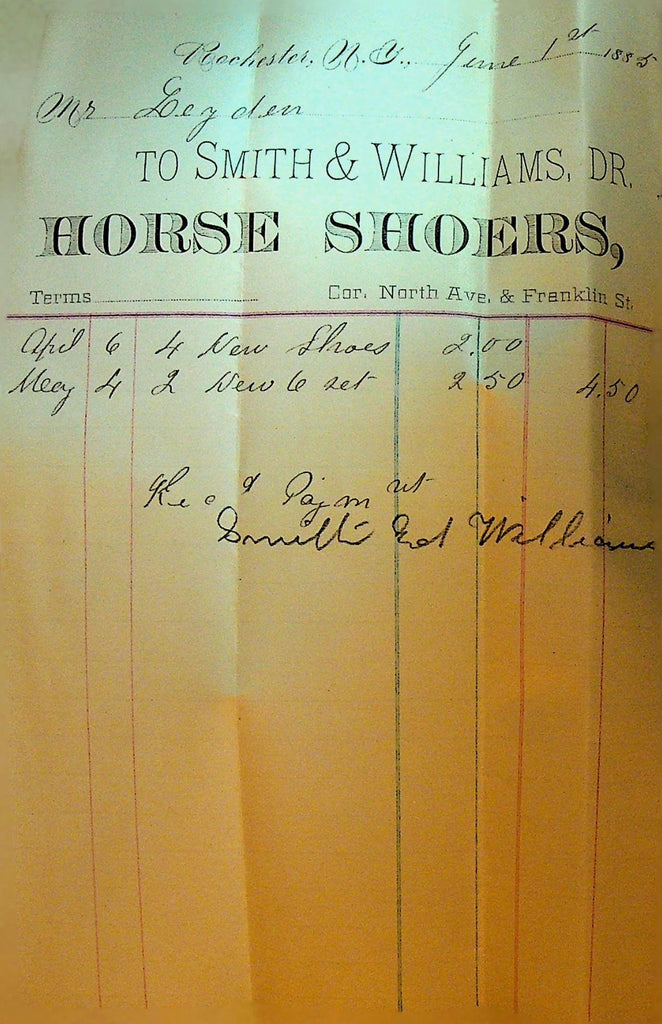 Rochester, N.Y., June 1st 1885
Mr Leyden
TO SMITH & WILLIAMS, DR.
HORSE SHOERS,
Terms Cor. North Ave. & Franklin St.
April 6 4 New Shoes 2.00
May 4 2 New 6 set 2 50 4.50
Rec d Paym nt
Smith and Williams